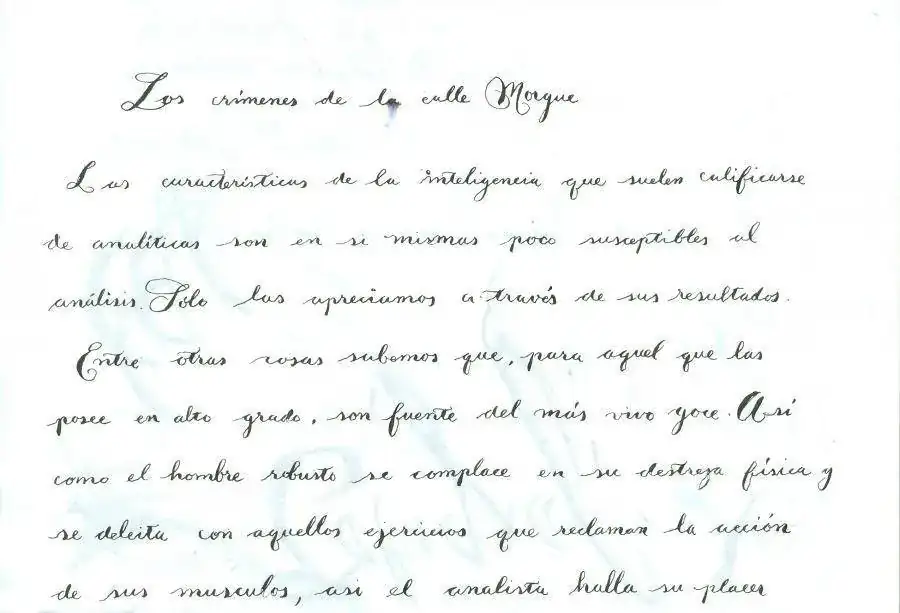 Los crímenes de la calle Morgue
Las características de la inteligencia que suelen calificarse
de analíticas son en si mismas poco susceptibles al
análisis. Sólo las apreciamos a través de sus resultados.
Entre otras cosas sabemos que, para aquel que las
posee en alto grado, son fuente del más vivo goce. Así
como el hombre robusto se complace en su destreza física y
se deleita con aquellos ejercicios que reclaman la acción
de sus musculos, asi el analista halla su placer